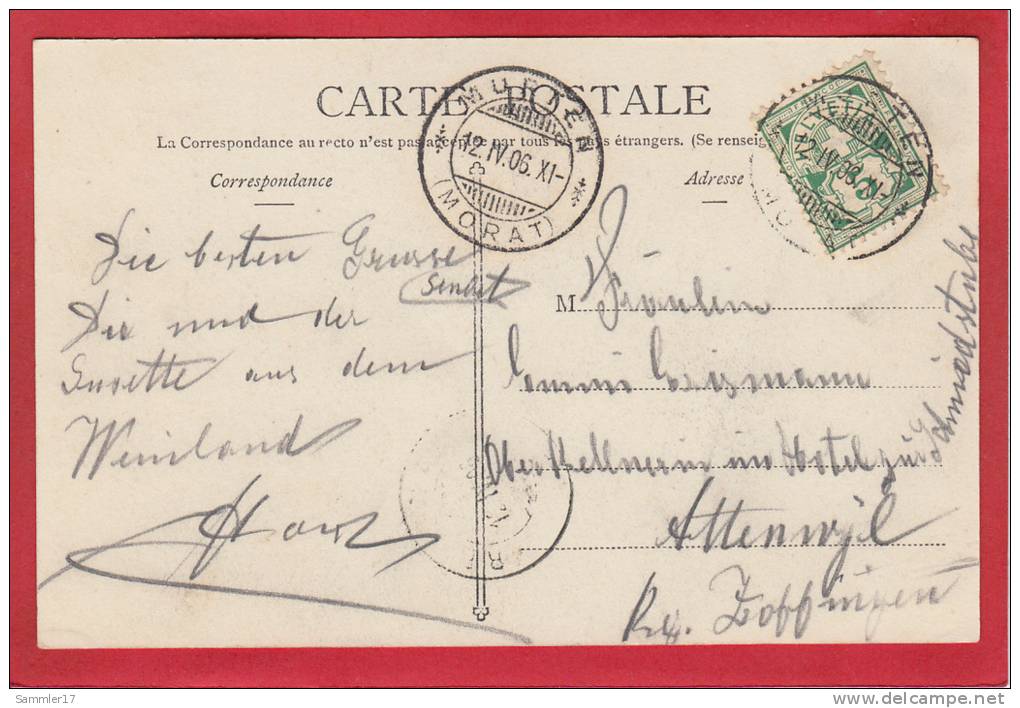 CARTE POSTALE
La Correspondance au recto n'est pas acceptée par tous les pays étrangers. (Se renseig
Correspondance
Adresse
MURTEN
12.IV.06.XI-
(MORAT)
MURTEN
12.IV.06.XI-
Die besten Grüsse
sendet
Dir und der
Susette aus dem
Weinland
Hans
M Fräulein
Emmi
Ober Kellnerin im Hotel zur
Schmidstube
Attenwyl
Zoffingen
Sammler17
www.delcampe.net